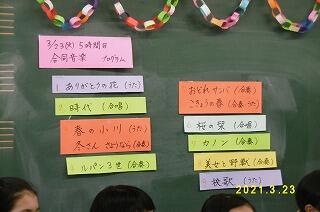 3/23(火) 5時間目
合同音楽 プログラム
1 ありがとうの花(うた)
2 時代(合唱)
3 春の小川(うた)
冬さん さようなら(合奏)
ルパン3世(合奏)
おどれサンバ(合奏)
こきょうの春(合奏)
桜の栞(合唱)
カノン(合奏)
美女と野獣(合奏)
校歌(うた)
2021.3.23